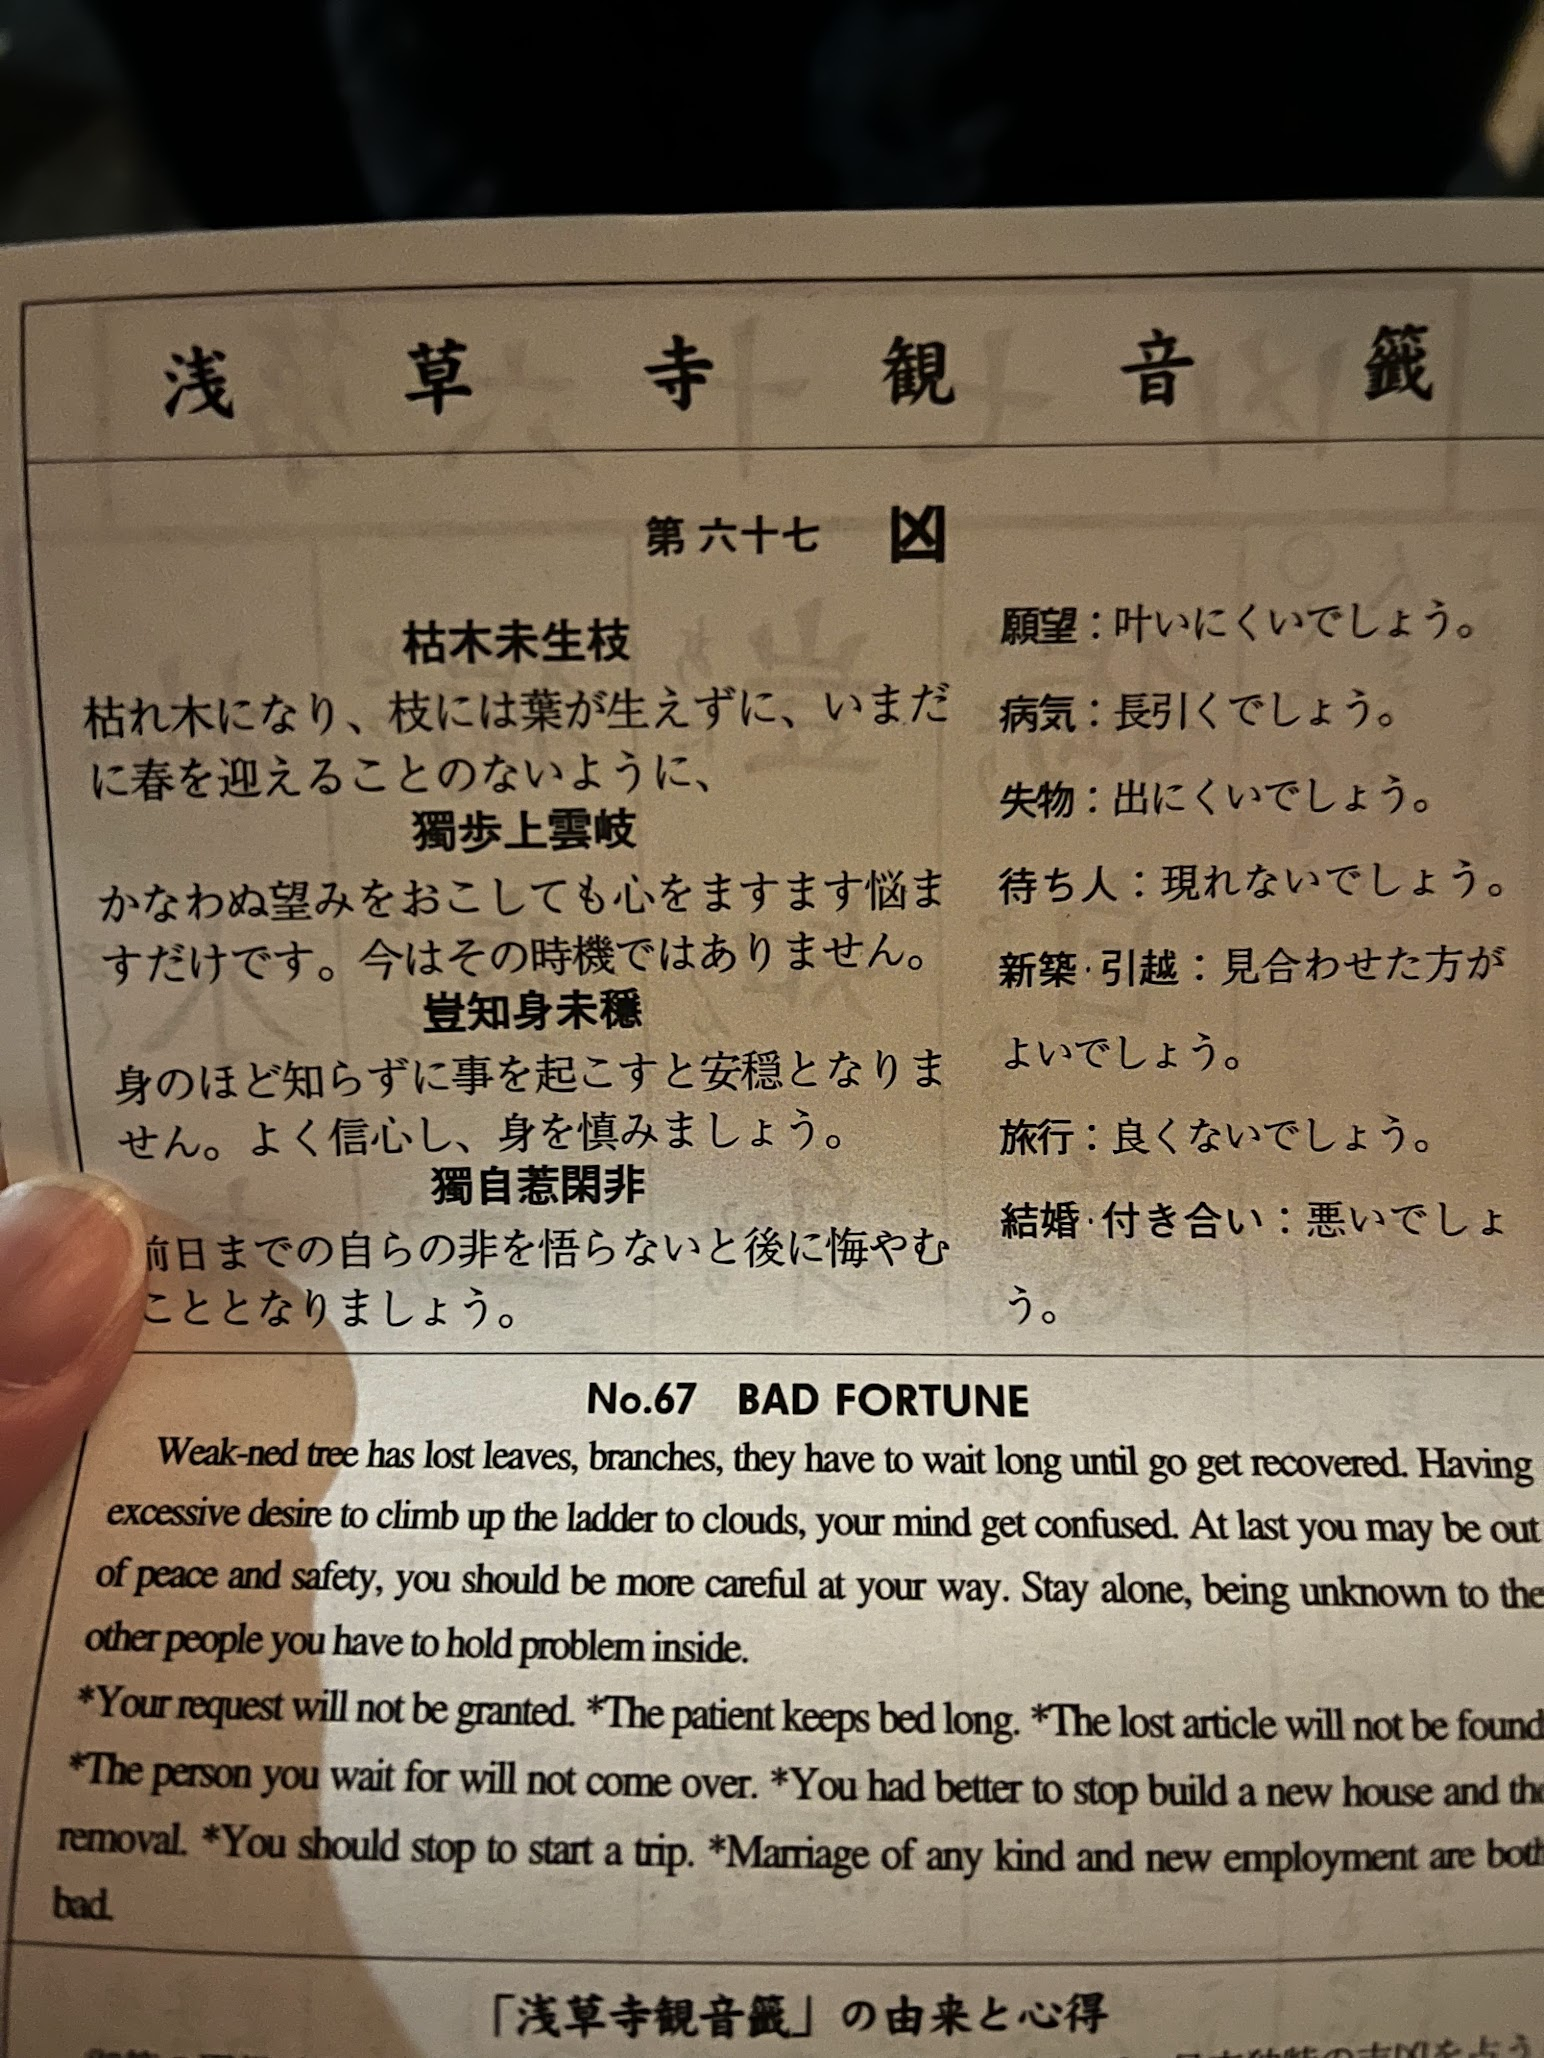 浅草寺観音籤
第六十七 凶
枯木未生枝
枯れ木になり、枝には葉が生えずに、いまだ
に春を迎えることのないように、
獨歩上雲岐
かなわぬ望みをおこしても心をますます悩ま
すだけです。今はその時機ではありません。
豈知身未穩
身のほど知らずに事を起こすと安穏となりま
せん。よく信心し、身を慎みましょう。
獨自惹閑非
前日までの自らの非を悟らないと後に悔やむ
こととなりましょう。
願望：叶いにくいでしょう。
病気：長引くでしょう。
失物：出にくいでしょう。
待ち人：現れないでしょう。
新築·引越：見合わせた方が
よいでしょう。
旅行：良くないでしょう。
結婚·付き合い：悪いでしょ
う。
No.67 BAD FORTUNE
Weak-ned tree has lost leaves, branches, they have to wait long until go get recovered. Having
excessive desire to climb up the ladder to clouds, your mind get confused. At last you may be out
of peace and safety, you should be more careful at your way. Stay alone, being unknown to the
other people you have to hold problem inside.
*Your request will not be granted. *The patient keeps bed long. *The lost article will not be found
*The person you wait for will not come over. *You had better to stop build a new house and the
removal. *You should stop to start a trip. *Marriage of any kind and new employment are both
bad.
「浅草寺観音籤」の由来と心得